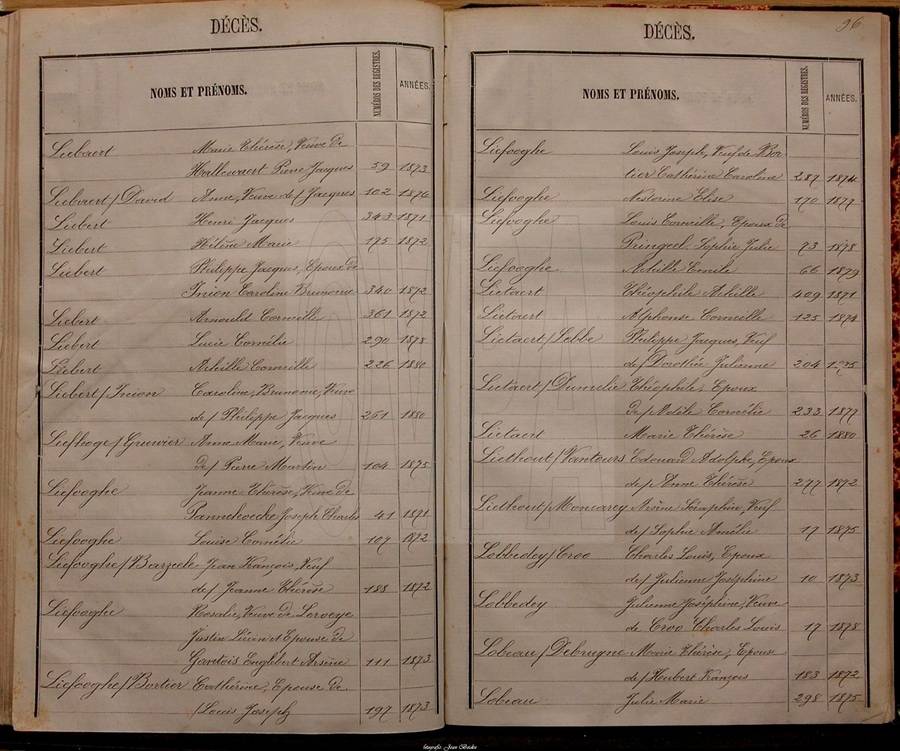 DÉCÈS.
NOMS ET PRÉNOMS.
NUMÉROS DES REGISTRES
ANNÉES.
Liebaert Marie Thérèse, Veuve de
Halleweart Pierre Jacques 59 1873
Liebaert / David Anna, Veuve de / Jacques 102 1876
Liebert Henri Jacques 343 1871
Liebert Hélène Marie 175 1872
Liebert Philippe Jacques, Epoux de
Inion Caroline Brunonie 340 1872
Liebert Arnould Corneille 361 1872
Liebert Lucie Cornélie 290 1878
Liebert Achille Corneille 226 1880
Liebert / Inion Caroline, Brunonie, Veuve
de / Philippe Jacques 261 1880
Liefhoge / Gruwier Anna Marie, Veuve
de / Pierre Martin 104 1875
Liefooghe Jeanne Thérèse, Veuve de
Pannekoecke Joseph Charles 41 1871
Liefooghe Louise Cornélie 107 1872
Liefooghe / Barzeele Jean François, Veuf
de / Jeanne Thérèse 188 1872
Liefooghe Rosalie, Veuve de Lerveye
Justin Livin et Epouse de
Gantois Englebert Arsène 111 1873
Liefooghe / Bortier Cathérine, Epouse de
/ Louis Joseph 197 1873
96
DÉCÈS.
NOMS ET PRÉNOMS.
NUMÉROS DES REGISTRES.
ANNÉES.
Liefooghe Louis Joseph, Veuf de Bor-
tier Cathérine Caroline 287 1874
Liefooghe Nestorine Elise 170 1877
Liefooghe Louis Corneille, Epoux de
Pringeel Sophie Julie 73 1878
Liefooghe Achille Emile 66 1879
Lietaert Théophile Achille 409 1871
Lietaert Alphonse Corneille 125 1874
Lietaert / Lebbe Philippe Jacques, Veuf
de / Dorothée Julienne 204 1875
Lietaert / Devrelie Théophile, Epoux
de / Adèle Cornélie 233 1877
Lietaert Marie Thérèse 26 1880
Liethout / Vantours Edouard Adolphe, Epoux
de / Anne Thérèse 277 1872
Liethout / Moncarey Arsène Séraphin, Veuf
de / Sophie Amélie 17 1875
Lobbedey / Croo Charles Louis, Epoux
de / Julienne Joséphine 10 1873
Lobbedey Julienne Joséphine, Veuve
de Croo Charles Louis 17 1878
Lobeau / Debruyne Marie Thérèse, Epoux
de / Hubert François 183 1872
Lobeau Julie Marie 298 1875
fotografie Jean Becko